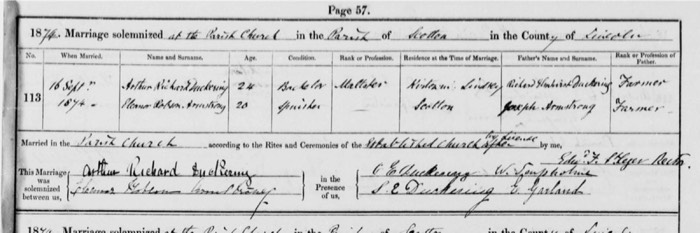 Page 57.
1874. Marriage solemnized at the Parish Church in the Parish of Scotton in the County of Lincoln
No. When Married. Name and Surname. Age. Condition. Rank or Profession. Residence at the Time of Marriage. Father's Name and Surname. Rank or Profession of Father.
113
16 Sept. Arthur Richard Duckering 24 Bachelor Maltster Kirton in Lindsey Richard Duckering Farmer
1874 Eleanor Armstrong 20 Spinster Scotton Joseph Armstrong Farmer
Married in the Parish Church according to the Rites and Ceremonies of the Established Church by licence by me,
Rector
This Marriage was solemnized between us, Arthur Richard Duckering
Armstrong
in the Presence of us, C E Duckering W.
S. E Duckering E. Garland
Marriage solemnized at the Parish Church in the of in the County of